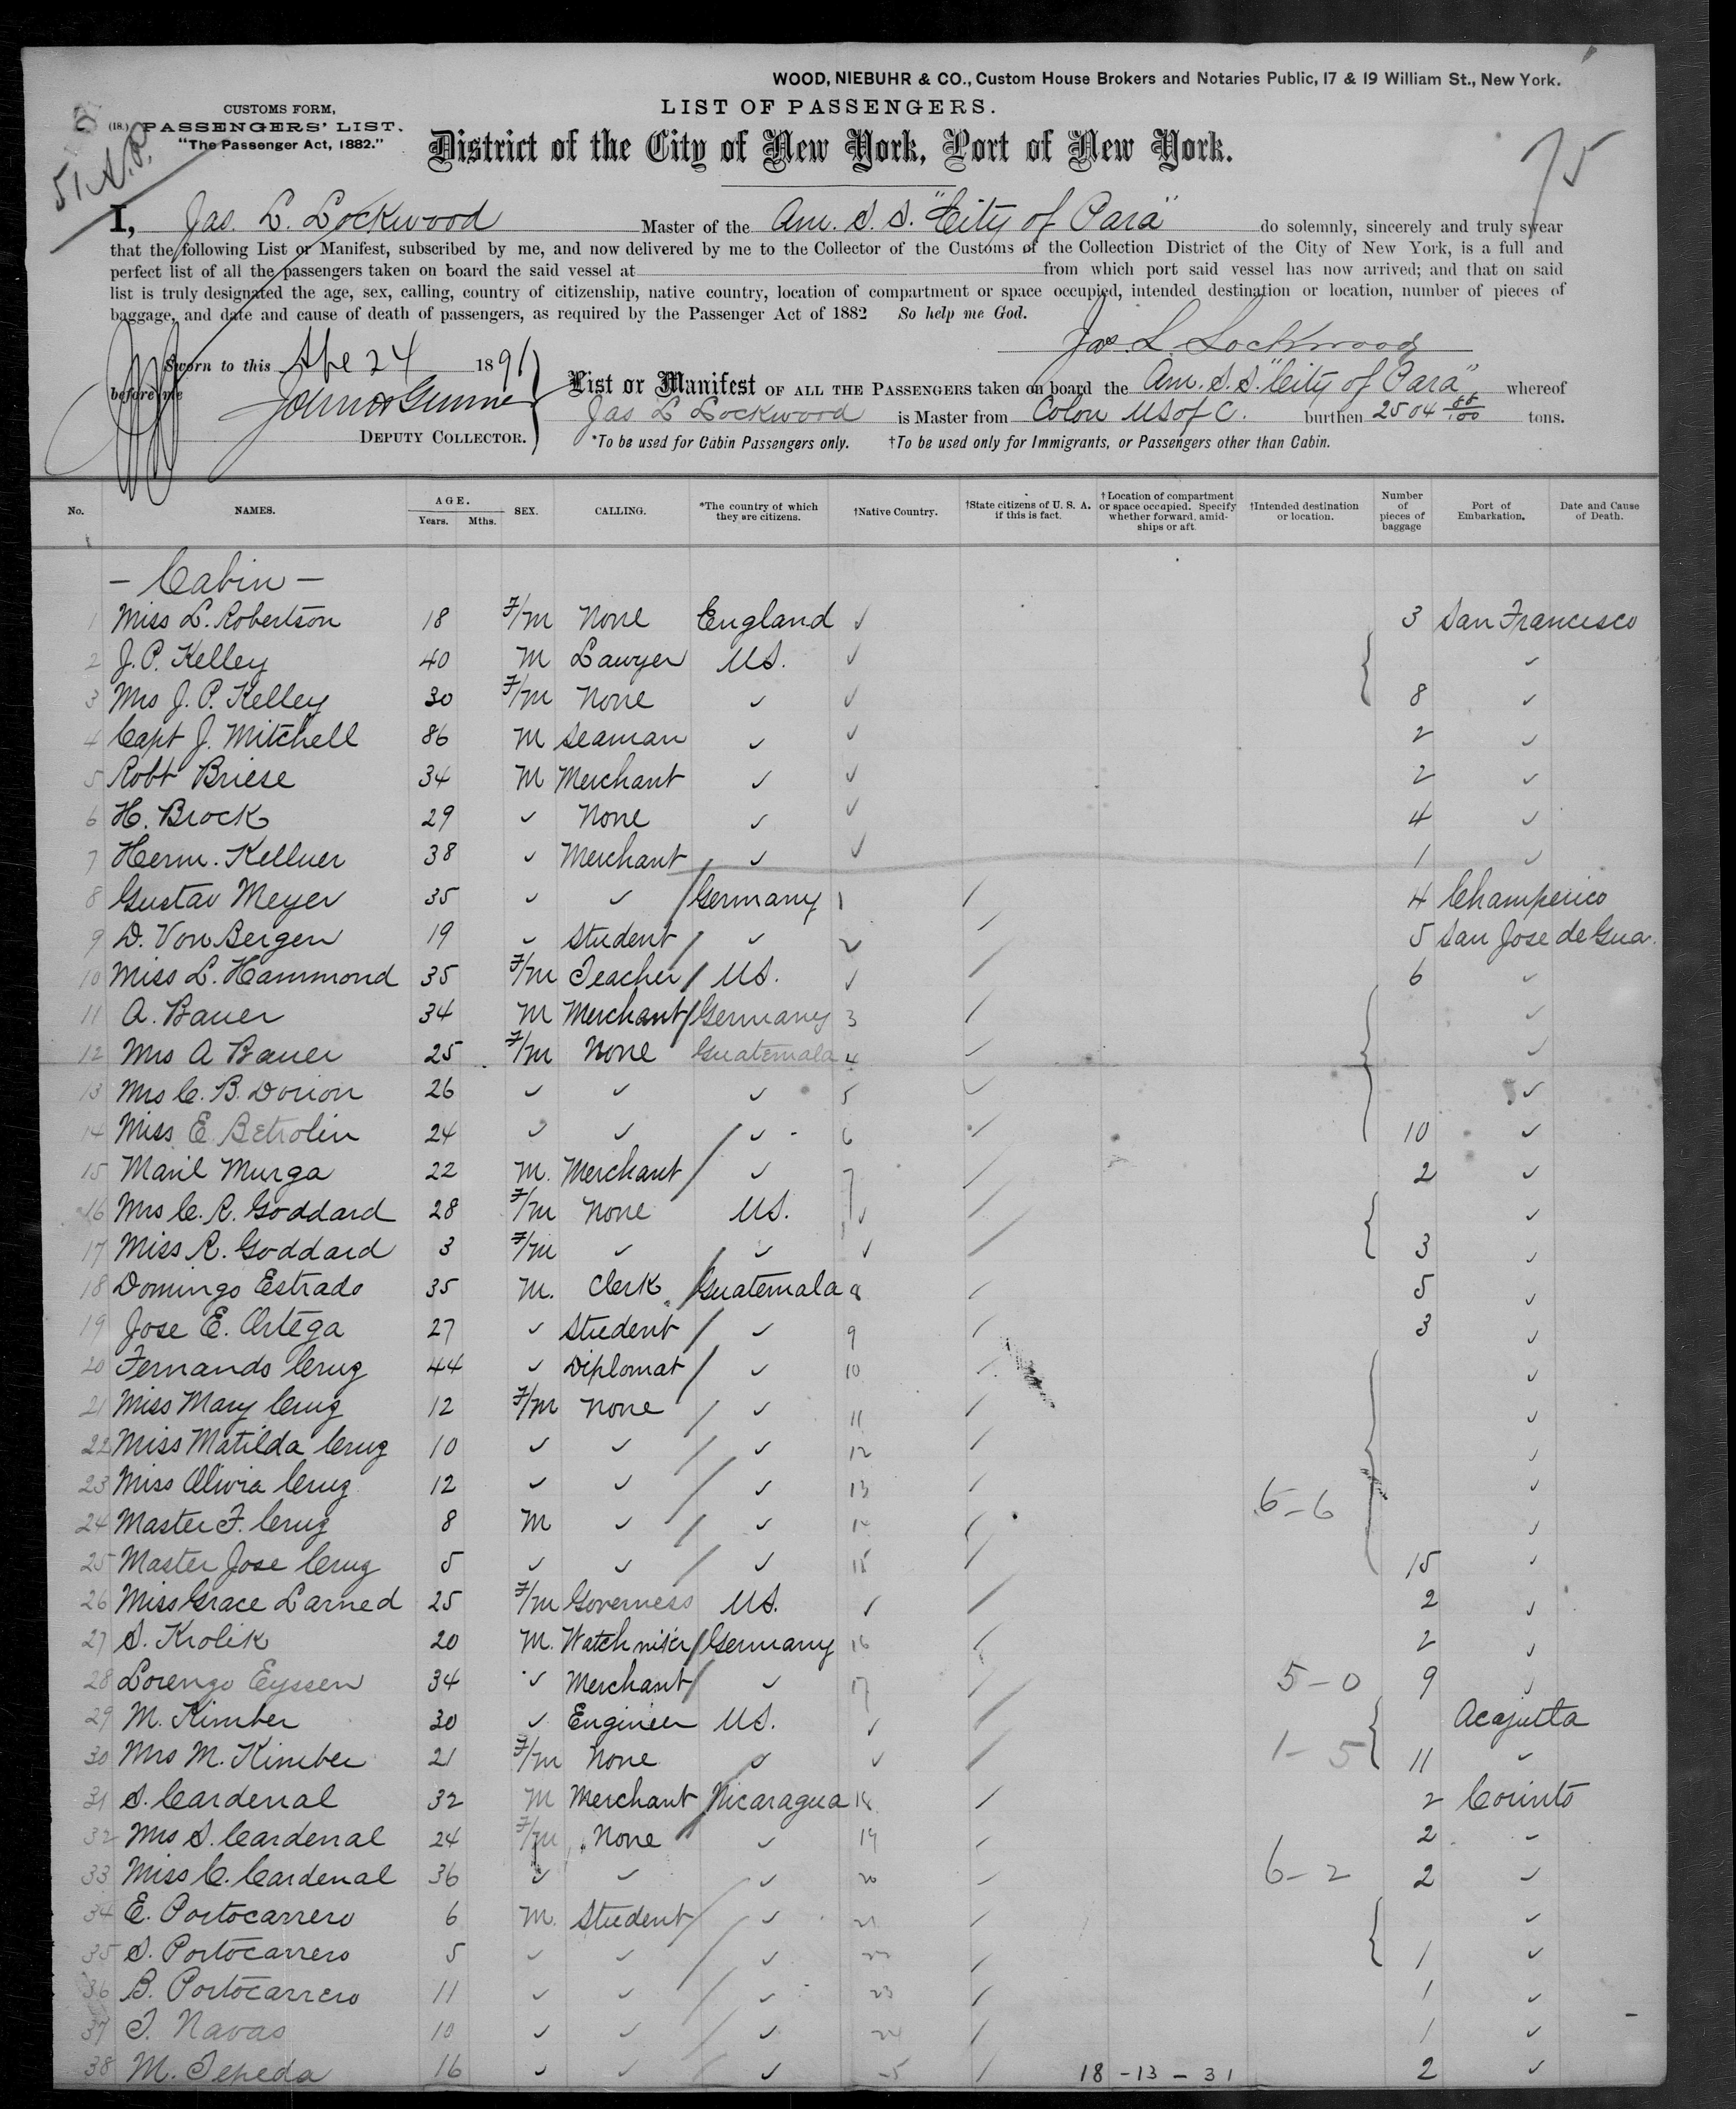 WOOD, NIEBUHR & CO., Custom House Brokers and Notaries Public, 17 & 19 William St., New York.
CUSTOMS FORM,
LIST OF PASSENGERS.
(18.) PASSENGERS' LIST.
"The Passenger Act, 1882."
District of the City of New York, Port of New York.
75
I, Jas. L. Lockwood Master of the Am. S. S. "City of Para" do solemnly, sincerely and truly swear
that the following List or Manifest, subscribed by me, and now delivered by me to the Collector of the Customs of the Collection District of the City of New York, is a full and
perfect list of all the passengers taken on board the said vessel at from which port said vessel has now arrived; and that on said
list is truly designated the age, sex, calling, country of citizenship, native country, location of compartment or space occupied, intended destination or location, number of pieces of
baggage, and date and cause of death of passengers, as required by the Passenger Act of 1882 So help me God.
Jas. L. Lockwood
Sworn to this 24 1891
before me
DEPUTY COLLECTOR.
List or Manifest OF ALL THE PASSENGERS taken on board the Am. S. S. "City of Para" whereof
Jas L Lockwood is Master from Colon US of C. burthen 2504 tons.
*To be used for Cabin Passengers only. †To be used only for Immigrants, or Passengers other than Cabin.
No. NAMES. AGE. Years. Mths. SEX. CALLING. *The country of which they are citizens. †Native Country. †State citizens of U. S. A. if this is fact. †Location of compartment or space occupied. Specify whether forward, amidships or aft. †Intended destination or location. Number of pieces of baggage Port of Embarkation. Date and Cause of Death.
- Cabin -
1 Miss L. Robertson 18 F/m None England ✓ 3 San Francisco
2 J. P. Kelley 40 M Lawyer US. ✓ ✓
3 Mrs J. P. Kelley 30 F/m None ✓ ✓ 8 ✓
4 Capt J. Mitchell 86 M Seaman ✓ ✓ 2 ✓
5 Robt Briese 34 M Merchant ✓ ✓ 2 ✓
6 H. Brock 29 ✓ None ✓ ✓ 4 ✓
7 Herm. Kellner 38 ✓ Merchant ✓ ✓ 1 ✓
8 Gustav Meyer 35 ✓ ✓ Germany 1 / 4 Champerico
9 D. Von Bergen 19 ✓ Student ✓ 2 / 5 San Jose de Gua.
10 Miss L. Hammond 35 F/m Teacher US. ✓ / 6 ✓
11 A. Bauer 34 M Merchant Germany 3 / ✓
12 Mrs A Bauer 25 F/m None Guatemala 4 ✓ ✓
13 Mrs C. B. Dorion 26 ✓ ✓ ✓ 5 ✓ ✓
14 Miss E Betrolin 24 ✓ ✓ ✓ 6 / 10 ✓
15 Maril Murga 22 M. Merchant ✓ 7 / 2 ✓
16 Mrs C. R. Goddard 28 F/m None US. ✓ / ✓
17 Miss R. Goddard 3 F/m ✓ ✓ ✓ / 3 ✓
18 Domingo Estrado 35 M. Clerk Guatemala 8 / 5 ✓
19 Jose E. Ortega 27 ✓ Student ✓ 9 / 3 ✓
20 Fernando Cruz 44 ✓ Diplomat ✓ 10 / ✓
21 Miss Mary Cruz 12 F/m None ✓ 11 / ✓
22 Miss Matilda Cruz 10 ✓ ✓ ✓ 12 / ✓
23 Miss Olivia Cruz 12 ✓ ✓ ✓ 13 / ✓
24 Master F. Cruz 8 M ✓ ✓ 14 / 6-6 ✓
25 Master Jose Cruz 5 ✓ ✓ ✓ 15 / 15 ✓
26 Miss Grace Larned 25 F/m Governess US. ✓ / 2 ✓
27 S. Krolik 20 M. Watchmkr Germany 16 / 2 ✓
28 Lorenzo Eyssen 34 ✓ Merchant ✓ 17 / 5-0 9 ✓
29 M. Kimber 30 ✓ Engineer US. ✓ / Acajutta
30 Mrs M. Kimber 21 F/m None ✓ ✓ / 1-5 11 ✓
31 S. Cardenal 32 M Merchant Nicaragua 18 / 2 Corinto
32 Mrs S. Cardenal 24 F/m None ✓ 19 / 2 ✓
33 Miss C. Cardenal 36 ✓ ✓ ✓ 20 / 6-2 2 ✓
34 E. Portocarrero 6 M. Student ✓ 21 / ✓
35 S. Portocarrero 5 ✓ ✓ ✓ 22 / 1 ✓
36 B. Portocarrero 11 ✓ ✓ ✓ 23 / 1 ✓
37 T. Navas 10 ✓ ✓ ✓ 24 / 1 ✓
38 M. Tepeda 16 ✓ ✓ ✓ / 18-13-31 2 ✓